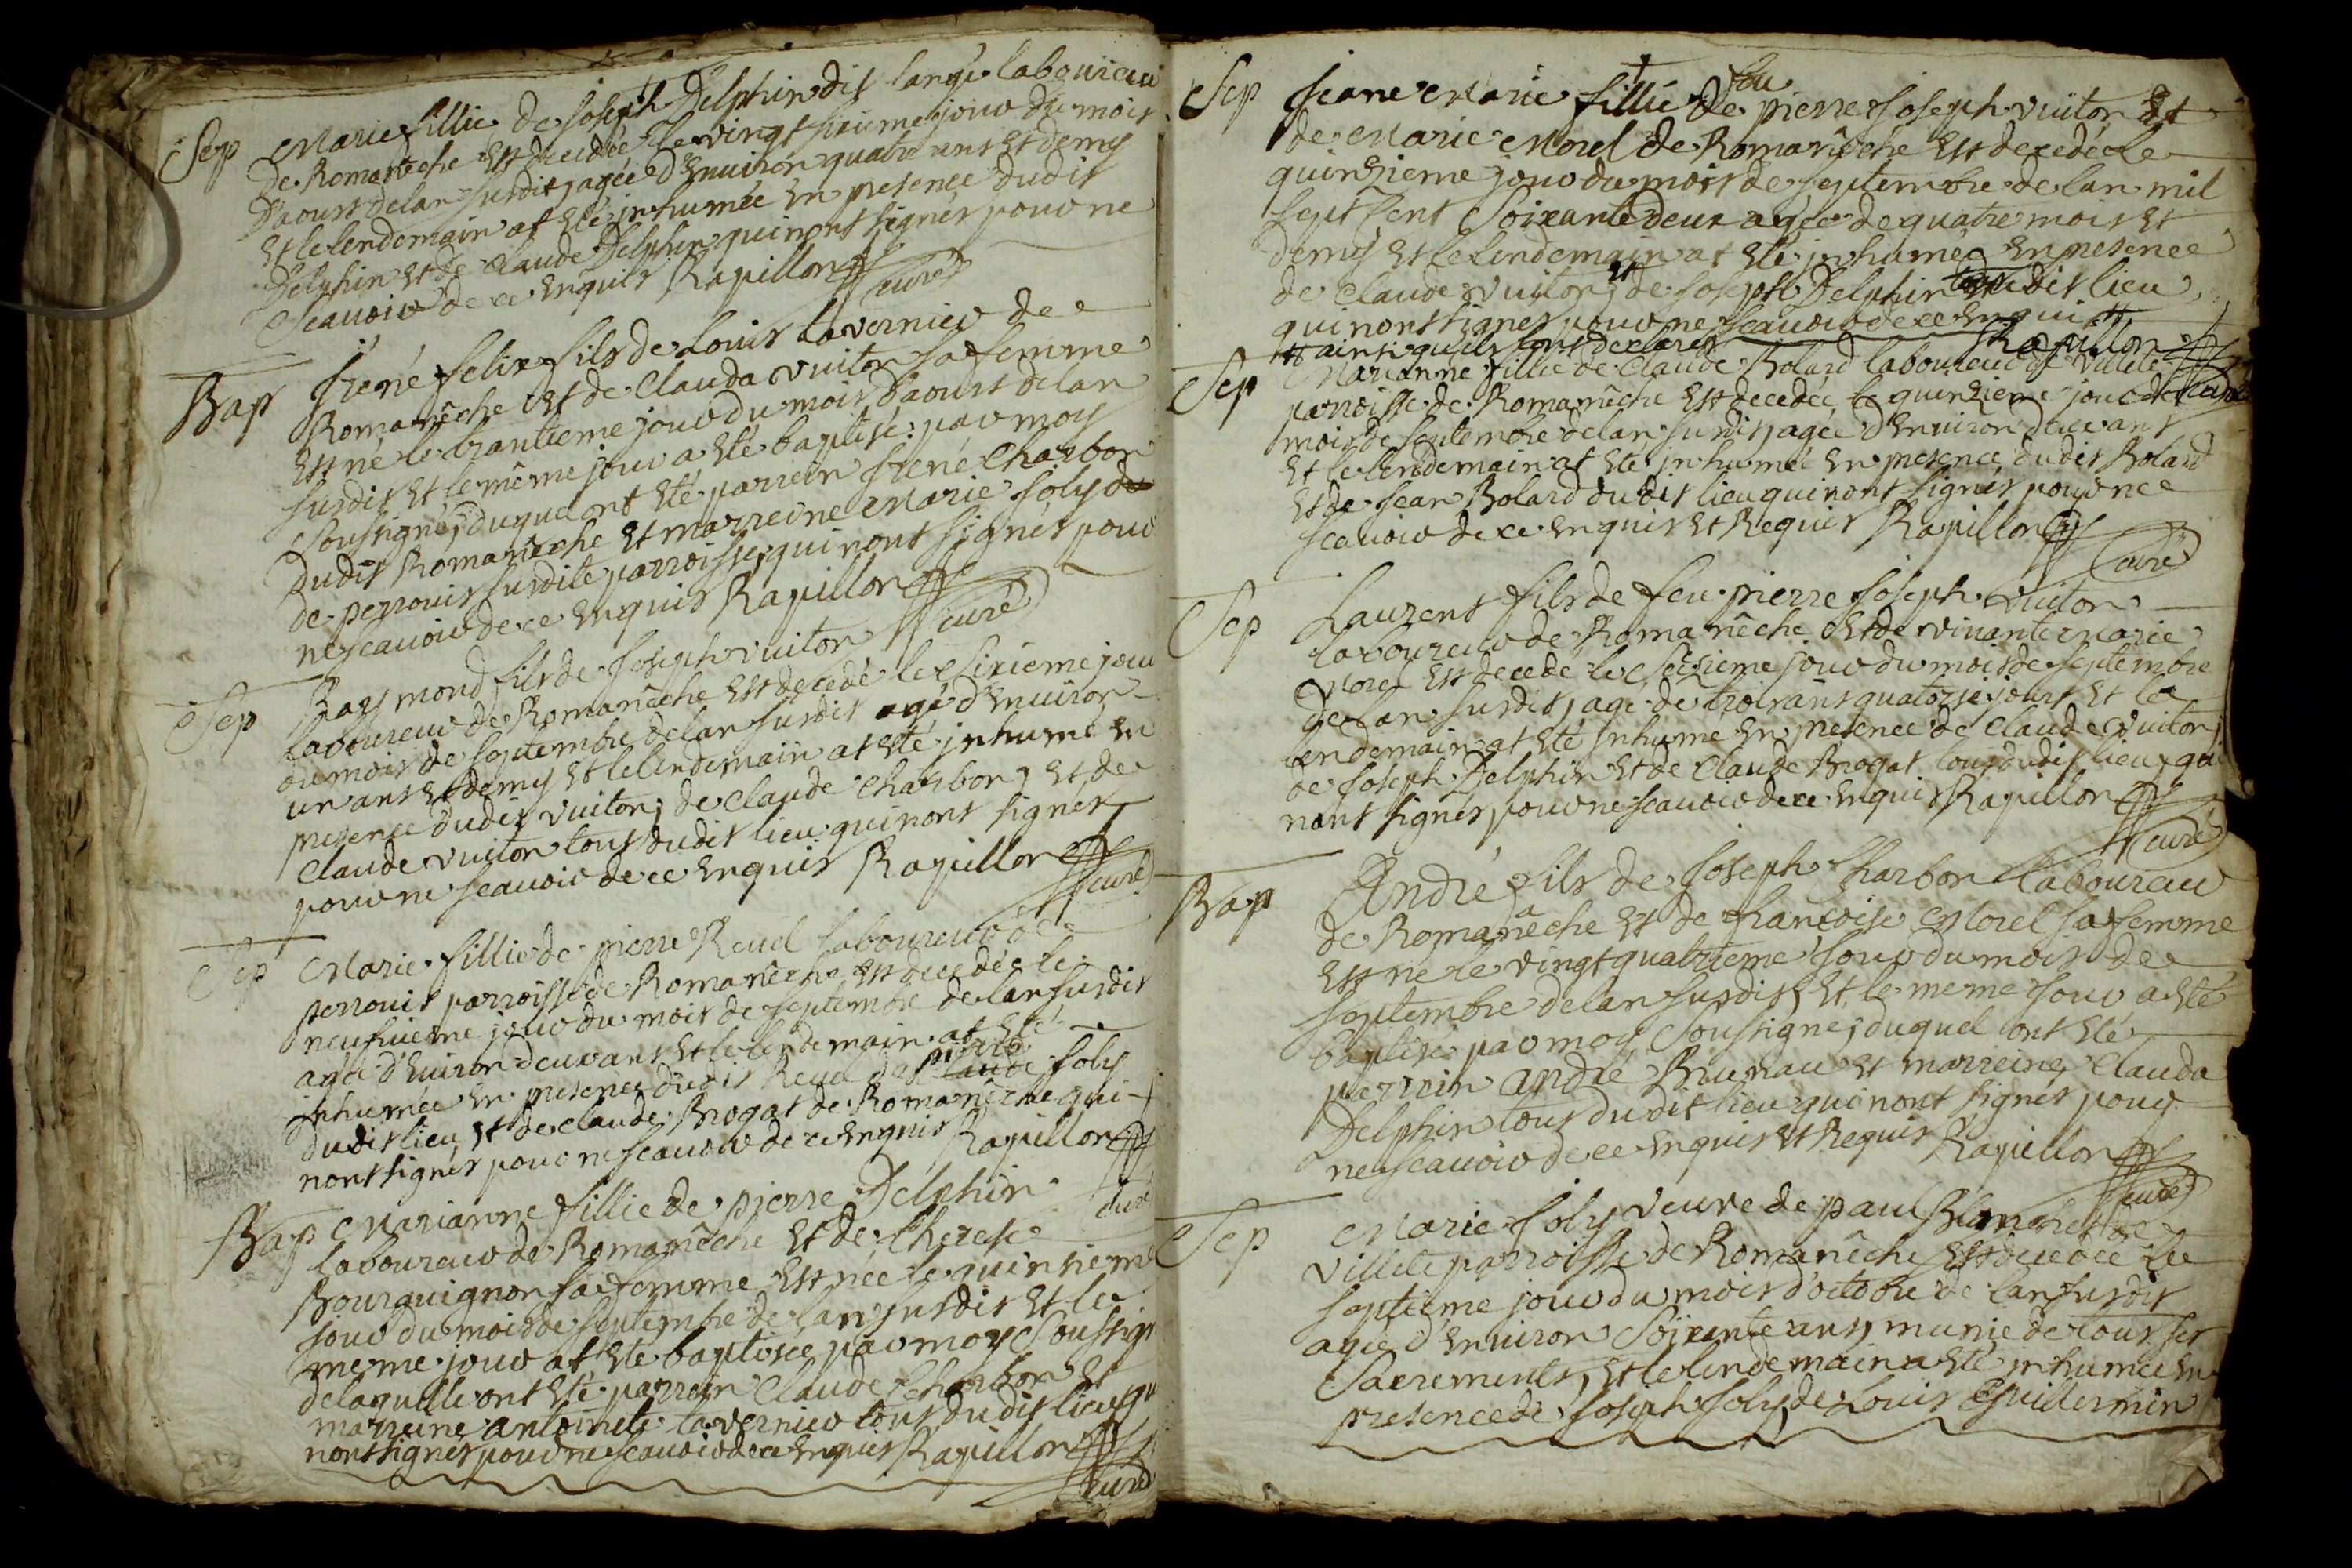 Sep Marie fillie de Joseph Delphin dit laboureur
de Romanêche est decedée le vingt sixieme jour du mois
D'aoust delan susdit, agée d'environ quatre ans et demy
et le lendemain at eté inhumée en presence dudit
Delphin et de Claude Delphin qui n'ont signés pour ne
scauoir de ce enquis Rapillon curé
Bap Irené felix fils de Louis lavernier de
Romanêche et de Clauda vuiton sa femme
est né le trantieme jour du mois D'aoust delan
susdit et le même jour a eté baptisé par moy
soussigné, duquel ont eté parrein Irené Charbon
dudit Romanêche et marreine Marie Joly de
de perrouis susdite parroisse, qui nont signés pour
ne scauoir de ce enquis Rapillon curé
Sep Raymond fils de Joseph vuiton
laboureur de Romanêche est decedé le sixieme jour
du mois de septembre delan susdit agé d'environ
un ans et demy et le lendemain at eté inhumé en
presence dudit vuiton, de Claude Charbon, et de
Claude vuiton tous dudit lieu qui nont signés
pour ne scauoir de ce enquis Rapillon curé
Sep Marie fillie de pierre Revel laboureur de
perrouis parroisse de Romanêche est decedée le
neufuieme jour du mois de septembre delan susdit
agée d'environ deux ans et le lendemain at eté
inhumée en presence dudit Revel de pierre Joly
dudit lieu et de Claude Brogat de Romanêche qui
nont signés pour ne scauoir de ce enquis Rapillon curé
Bap Marianne fillie de pierre Delphin
laboureur de Romanêche et de therese
Bourguignon sa femme est née le quinsieme
jour du mois de septembre de lan susdit et le
meme jour at eté baptisée par moy soussig
delaquelle ont eté parrein Claude Charbon et
marreine antoinete lavernier tous dudit lieu qu
nont signés pour ne scauoir de ce enquis Rapillon curé
Sep Jeane Marie fillie de feu pierre Joseph vuiton et
de Marie Morel de Romanêche est decedée le
quinsieme jour du mois de septembre de lan mil
sept cent soixante deux agée de quatre mois et
demy et le lendemain at eté inhumée en presence
de Claude vuiton, et de Joseph Delphin dudit lieu
qui nont signés pour ne scauoir de ce enquis
ainsi quils ont declarés Rapillon
Sep Marianne fillie de Claude Bolard laboureur de vilete curé
parroisse de Romanêche est decedée le quinsieme jour de
mois de septembre delan susdit, agée d'environ deux ans
et le lendemain at eté inhumée en presence dudit Bolard
et de Jean Bolard dudit lieu qui nont signés pour ne
scauoir de ce enquis et Requis Rapillon curé
Sep Laurent fils de feu pierre Joseph vuiton
laboureur de Romanêche et de vivante Marie
Morel est decedé le seisieme jour du mois de septembre
delan susdit, agé de trois ans quatorse jours et le
lendemain at eté inhumé en presence de Claude vuiton,
de Joseph Delphin et de Claude Brogat tous dudit lieu, qui
nont signés, pour ne scauoir de ce enquis Rapillon curé
Bap André fils de Joseph Charbon laboureur
de Romanêche et de francoise Morel sa femme
est né le vingt quatrieme jour du mois de
septembre delan susdit, et le meme jour a eté
baptisé par moy soussigné, duquel ont eté
perrein andré Bruneau et marreine Clauda
Delphin tous dudit lieu qui nont signés pour
ne scauoir de ce enquis et Requis Rapillon curé
Sep Marie Joly veuve de paul Blanchet de
villete parroisse de Romanêche est decedée le
septieme jour du mois d'octobre de lan susdit
agée d'environ soixante ans, munie de tous ses
sacrements, et le lendemain a eté inhumée en
presence de Joseph Joly, de Louis Guillermin